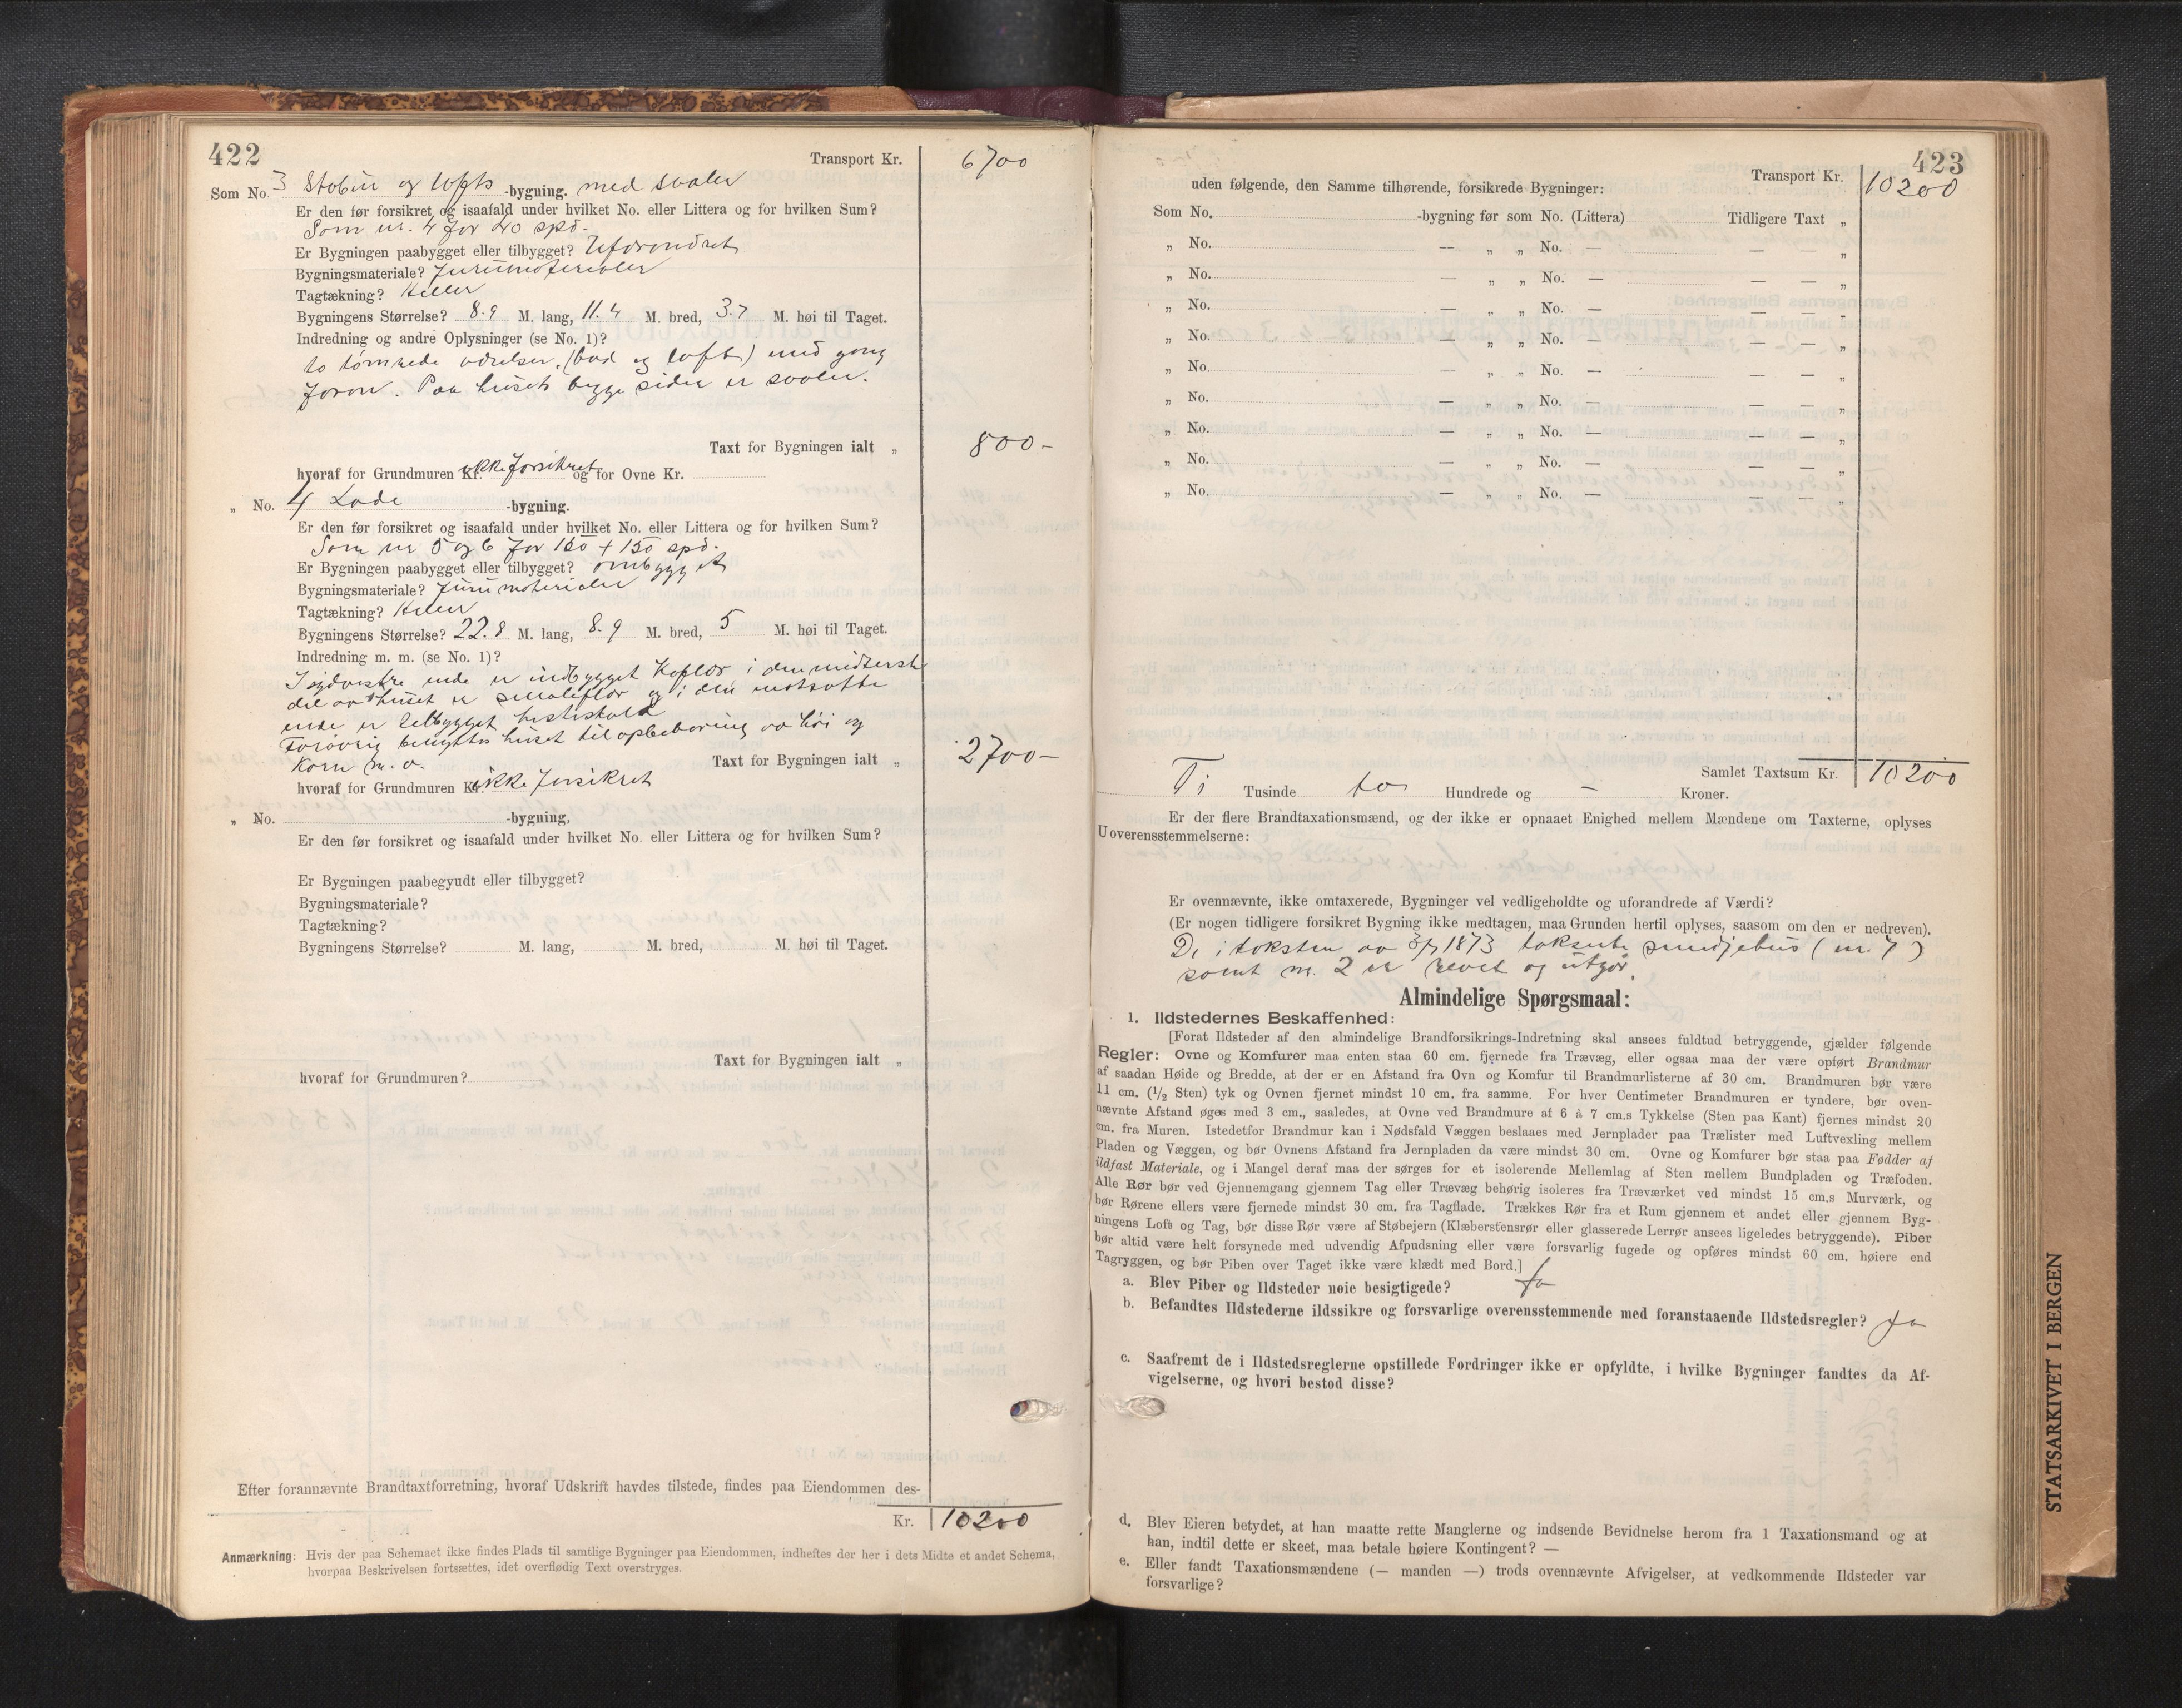 422
Transport Kr. 6700
Som No. 3 Stobur og lofts -bygning. med svaler
Er den før forsikret og isaafald under hvilket No. eller Littera og for hvilken Sum?
Som nr. 4 for 40 spd.
Er Bygningen paabygget eller tilbygget? Uforandret
Bygningsmateriale? Furumaterialer
Tagtækning? Heller
Bygningens Størrelse? 8.9 M. lang, 11.4 M. bred, 3.7 M. høi til Taget.
Indredning og andre Oplysninger (se No. 1)?
to tømrede værelser, (bod og loft) med gang
foran. Paa husets begge sider er svaler.
Taxt for Bygningen ialt „ 800-
hvoraf for Grundmuren Kr. ikke forsikret og for Ovne Kr.
„ No. 4 Lade -bygning.
Er den før forsikret og isaafald under hvilket No. eller Littera og for hvilken Sum?
Som nr 5 og 6 for 150 + 150 spd.
Er Bygningen paabygget eller tilbygget? ombygget
Bygningsmateriale? Furumaterialer
Tagtækning? Heller
Bygningens Størrelse? 22.8 M. lang, 8.9 M. bred, 5 M. høi til Taget.
Indredning m. m. (se No. 1)?
I sydvestre ende er indbygget Koflor i den midterste
del av huset er smaleflor og i den motsatte
ende er tilbygget hestestald
Forøvrig benyttes huset til opbevaring av høi og
Korn m. v.
Taxt for Bygningen ialt „ 2700-
hvoraf for Grundmuren Kr. ikke forsikret
„ No. -bygning,
Er den før forsikret og isaafald under hvilket No. eller Littera og for hvilken Sum?
Er Bygningen paabegyndt eller tilbygget?
Bygningsmateriale?
Tagtækning?
Bygningens Størrelse? M. lang, M. bred, M. høi til Taget.
Taxt for Bygningen ialt „
hvoraf for Grundmuren?
Efter forannævnte Brandtaxtforretning, hvoraf Udskrift havdes tilstede, findes paa Eiendommen des-
Kr. 10200
Anmærkning: Hvis der paa Schemaet ikke findes Plads til samtlige Bygninger paa Eiendommen, indheftes der her i dets Midte et andet Schema,
hvorpaa Beskrivelsen fortsættes, idet overflødig Text overstryges.
423
Transport Kr. 10200
uden følgende, den Samme tilhørende, forsikrede Bygninger:
Som No. -bygning før som No. (Littera) Tidligere Taxt „
„ No. — „ „ No. — — — „
„ No. — „ „ No. — — — „
„ No. — „ „ No. — — — „
„ No. — „ „ No. — — — „
„ No. — „ „ No. — — — „
„ No. — „ „ No. — — — „
„ No. — „ „ No. — — — „
„ No. — „ „ No. — — — „
„ No. — „ „ No. — — — „
Samlet Taxtsum Kr. 10200
Ti Tusinde to Hundrede og - Kroner.
Er der flere Brandtaxationsmænd, og der ikke er opnaaet Enighed mellem Mændene om Taxterne, oplyses
Uoverensstemmelserne:
Er ovennævnte, ikke omtaxerede, Bygninger vel vedligeholdte og uforandrede af Værdi?
(Er nogen tidligere forsikret Bygning ikke medtagen, maa Grunden hertil oplyses, saasom om den er nedreven).
De i taksten av 3/7 1873 takserte smidjehus (nr. 7)
samt nr. 2 er revet og utgår.
Almindelige Spørgsmaal:
1. Ildstedernes Beskaffenhed:
[Forat Ildsteder af den almindelige Brandforsikrings-Indretning skal ansees fuldtud betryggende, gjælder følgende
Regler: Ovne og Komfurer maa enten staa 60 cm. fjernede fra Trævæg, eller ogsaa maa der være opført Brandmur
af saadan Høide og Bredde, at der er en Afstand fra Ovn og Komfur til Brandmurlisterne af 30 cm. Brandmuren bør være
11 cm. (1/2 Sten) tyk og Ovnen fjernet mindst 10 cm. fra samme. For hver Centimeter Brandmuren er tyndere, bør oven-
nævnte Afstand øges med 3 cm., saaledes, at Ovne ved Brandmure af 6 à 7 cm.s Tykkelse (Sten paa Kant) fjernes mindst 20
cm. fra Muren. Istedetfor Brandmur kan i Nødsfald Væggen beslaaes med Jernplader paa Trælister med Luftvexling mellem
Pladen og Væggen, og bør Ovnens Afstand fra Jernpladen da være mindst 30 cm. Ovne og Komfurer bør staa paa Fødder af
ildfast Materiale, og i Mangel deraf maa der sørges for et isolerende Mellemlag af Sten mellem Bundpladen og Træfoden.
Alle Rør bør ved Gjennemgang gjennem Tag eller Trævæg behørig isoleres fra Træværket ved mindst 15 cm.s Murværk, og
bør Rørene ellers være fjernede mindst 30 cm. fra Tagflade. Trækkes Rør fra et Rum gjennem et andet eller gjennem Byg-
ningens Loft og Tag, bør disse Rør være af Støbejern (Klæberstensrør eller glasserede Lerrør ansees ligeledes betryggende). Piber
bør altid være helt forsynede med udvendig Afpudsning eller være forsvarlig fugede og opføres mindst 60 cm. høiere end
Tagryggen, og bør Piben over Taget ikke være klædt med Bord.]
a. Blev Piber og Ildsteder nøie besigtigede? ja
b. Befandtes Ildstederne ildssikre og forsvarlige overensstemmende med foranstaaende Ildstedsregler? ja
c. Saafremt de i Ildstedsreglerne opstillede Fordringer ikke er opfyldte, i hvilke Bygninger fandtes da Af-
vigelserne, og hvori bestod disse?
d. Blev Eieren betydet, at han maatte rette Manglerne og indsende Bevidnelse herom fra 1 Taxationsmand og at
han, indtil dette er skeet, maa betale høiere Kontingent? —
e. Eller fandt Taxationsmændene (— manden —) trods ovennævnte Afvigelser, at vedkommende Ildsteder var
forsvarlige?
STATSARKIVET I BERGEN